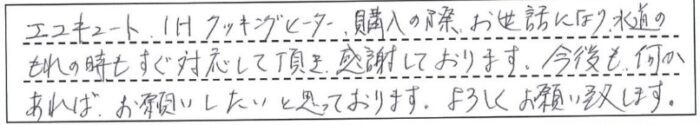 エコキュート、IHクッキングヒーター、購入の際、お世話になり、水道の
もれの時もすぐ対応して頂き、感謝しております。今後も、何か
あれば、お願いしたいと思っております。よろしくお願い致します。